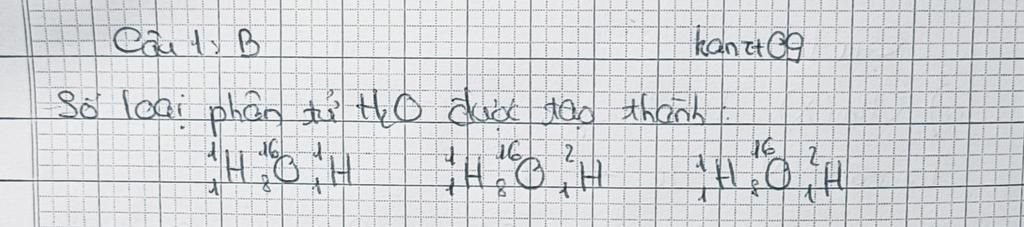 Câu 1: B kanzt09
Số loại phân tử H₂O được tạo thành:
¹₁H ¹⁶₈O ¹₁H ¹₁H ¹⁶₈O ²₁H ¹₁H ¹⁶₈O ²₁H